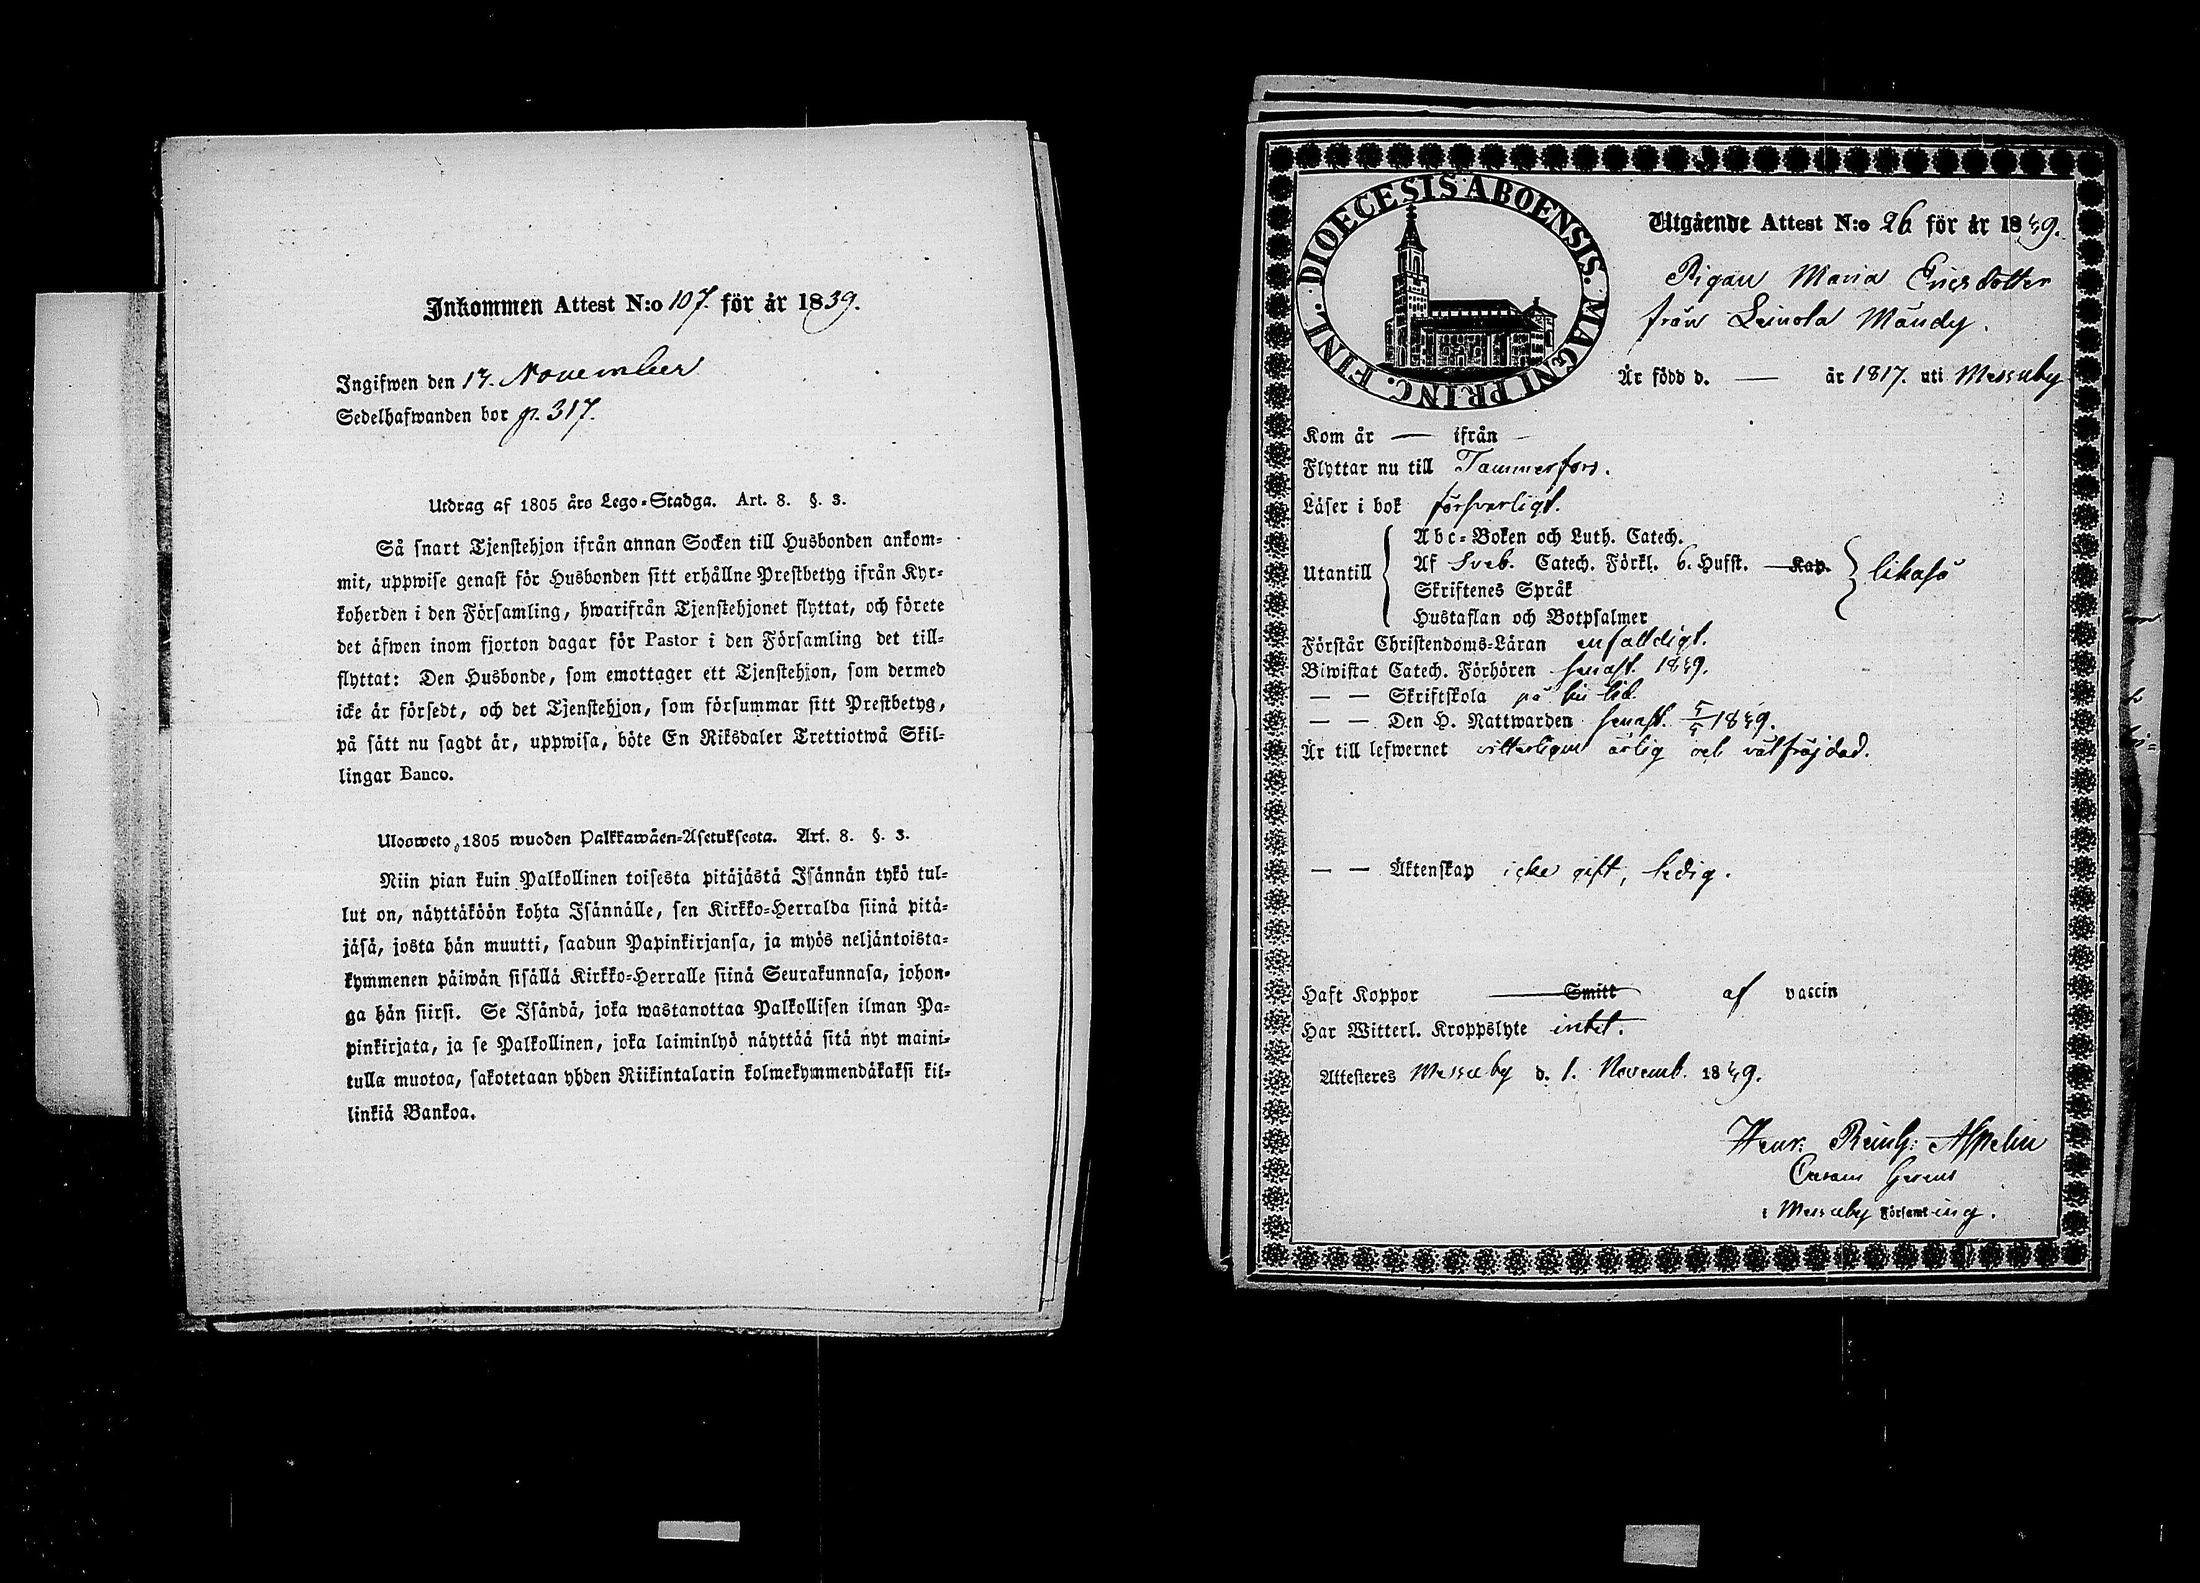 Inkommen Attest N:o 107. för år 1839.
Ingifwen den 17. November
Sedelhafwanden bor p. 317.
Utdrag af 1805 års Lego-Stadga. Art. 8. §. 3.
Så snart Tjenstehjon ifrån annan Socken till Husbonden ankom-
mit, uppwise genast för Husbonden sitt erhållne Prestbetyg ifrån Kyr-
koherden i den Församling, hwarifrån Tjenstehjonet flyttat, och förete
det äfwen inom fjorton dagar för Pastor i den Församling det till-
flyttat: Den Husbonde, som emottager ett Tjenstehjon, som dermed
icke är försedt, och det Tjenstehjon, som försummar sitt Prestbetyg,
på sätt nu sagdt är, uppwisa, böte En Riksdaler Trettiotwå Skil-
lingar Banco.
Ulosweto 1805 wuoden Palkkawäen-Asetuksesta. Art. 8. §. 3.
Niin pian kuin Palkollinen toisesta pitäjästä Isännän tykö tul-
lut on, näyttäköön kohta Isännälle, sen Kirkko-Herralda siinä pitä-
jäsä, josta hän muutti, saadun Papinkirjansa, ja myös neljäntoista-
kymmenen päiwän sisällä Kirkko-Herralle siinä Seurakunnasa, johon-
ga hän siirsi. Se Isändä, joka wastanottaa Palkollisen ilman Pa-
pinkirjata, ja se Palkollinen, joka laiminlyö näyttää sitä nyt maini-
tulla muotoa, sakotetaan yhden Riikintalarin kolmekymmendäkaksi kil-
linkiä Bankoa.
DIOECESIS ABOENSIS. MAGNI PRINC. FINL.
Utgående Attest N:o 26 för år 1839.
Pigan Maria Ericsdotter
från Leinola Måndy.
Är född d. — år 1817. uti Messuby
Kom år — ifrån —
Flyttar nu till Tammerfors.
Läser i bok försvarligt.
Abc-Boken och Luth. Catech.
Utantill Af Sveb. Catech. Förkl. 6. Hufst. Kap. likaså
Skriftenes Språk
Hustaflan och Botpsalmer
Förstår Christendoms-Läran enfaldigt.
Biwistat Catech. Förhören senast. 1839.
— — Skriftskola på sin tid.
— — Den H. Nattwarden senast. 1839.
Är till lefwernet vitterligen ärlig och välfräjdad.
— — Äktenskap icke gift, ledig.
Haft Koppor Smitt af vaccin
Har Witterl. Kroppslyte intet.
Attesteres Messuby d. 1. Novemb. 1839.
Henr. Reinh: Aspelin
Curam Gerens
i Messuby Församling.